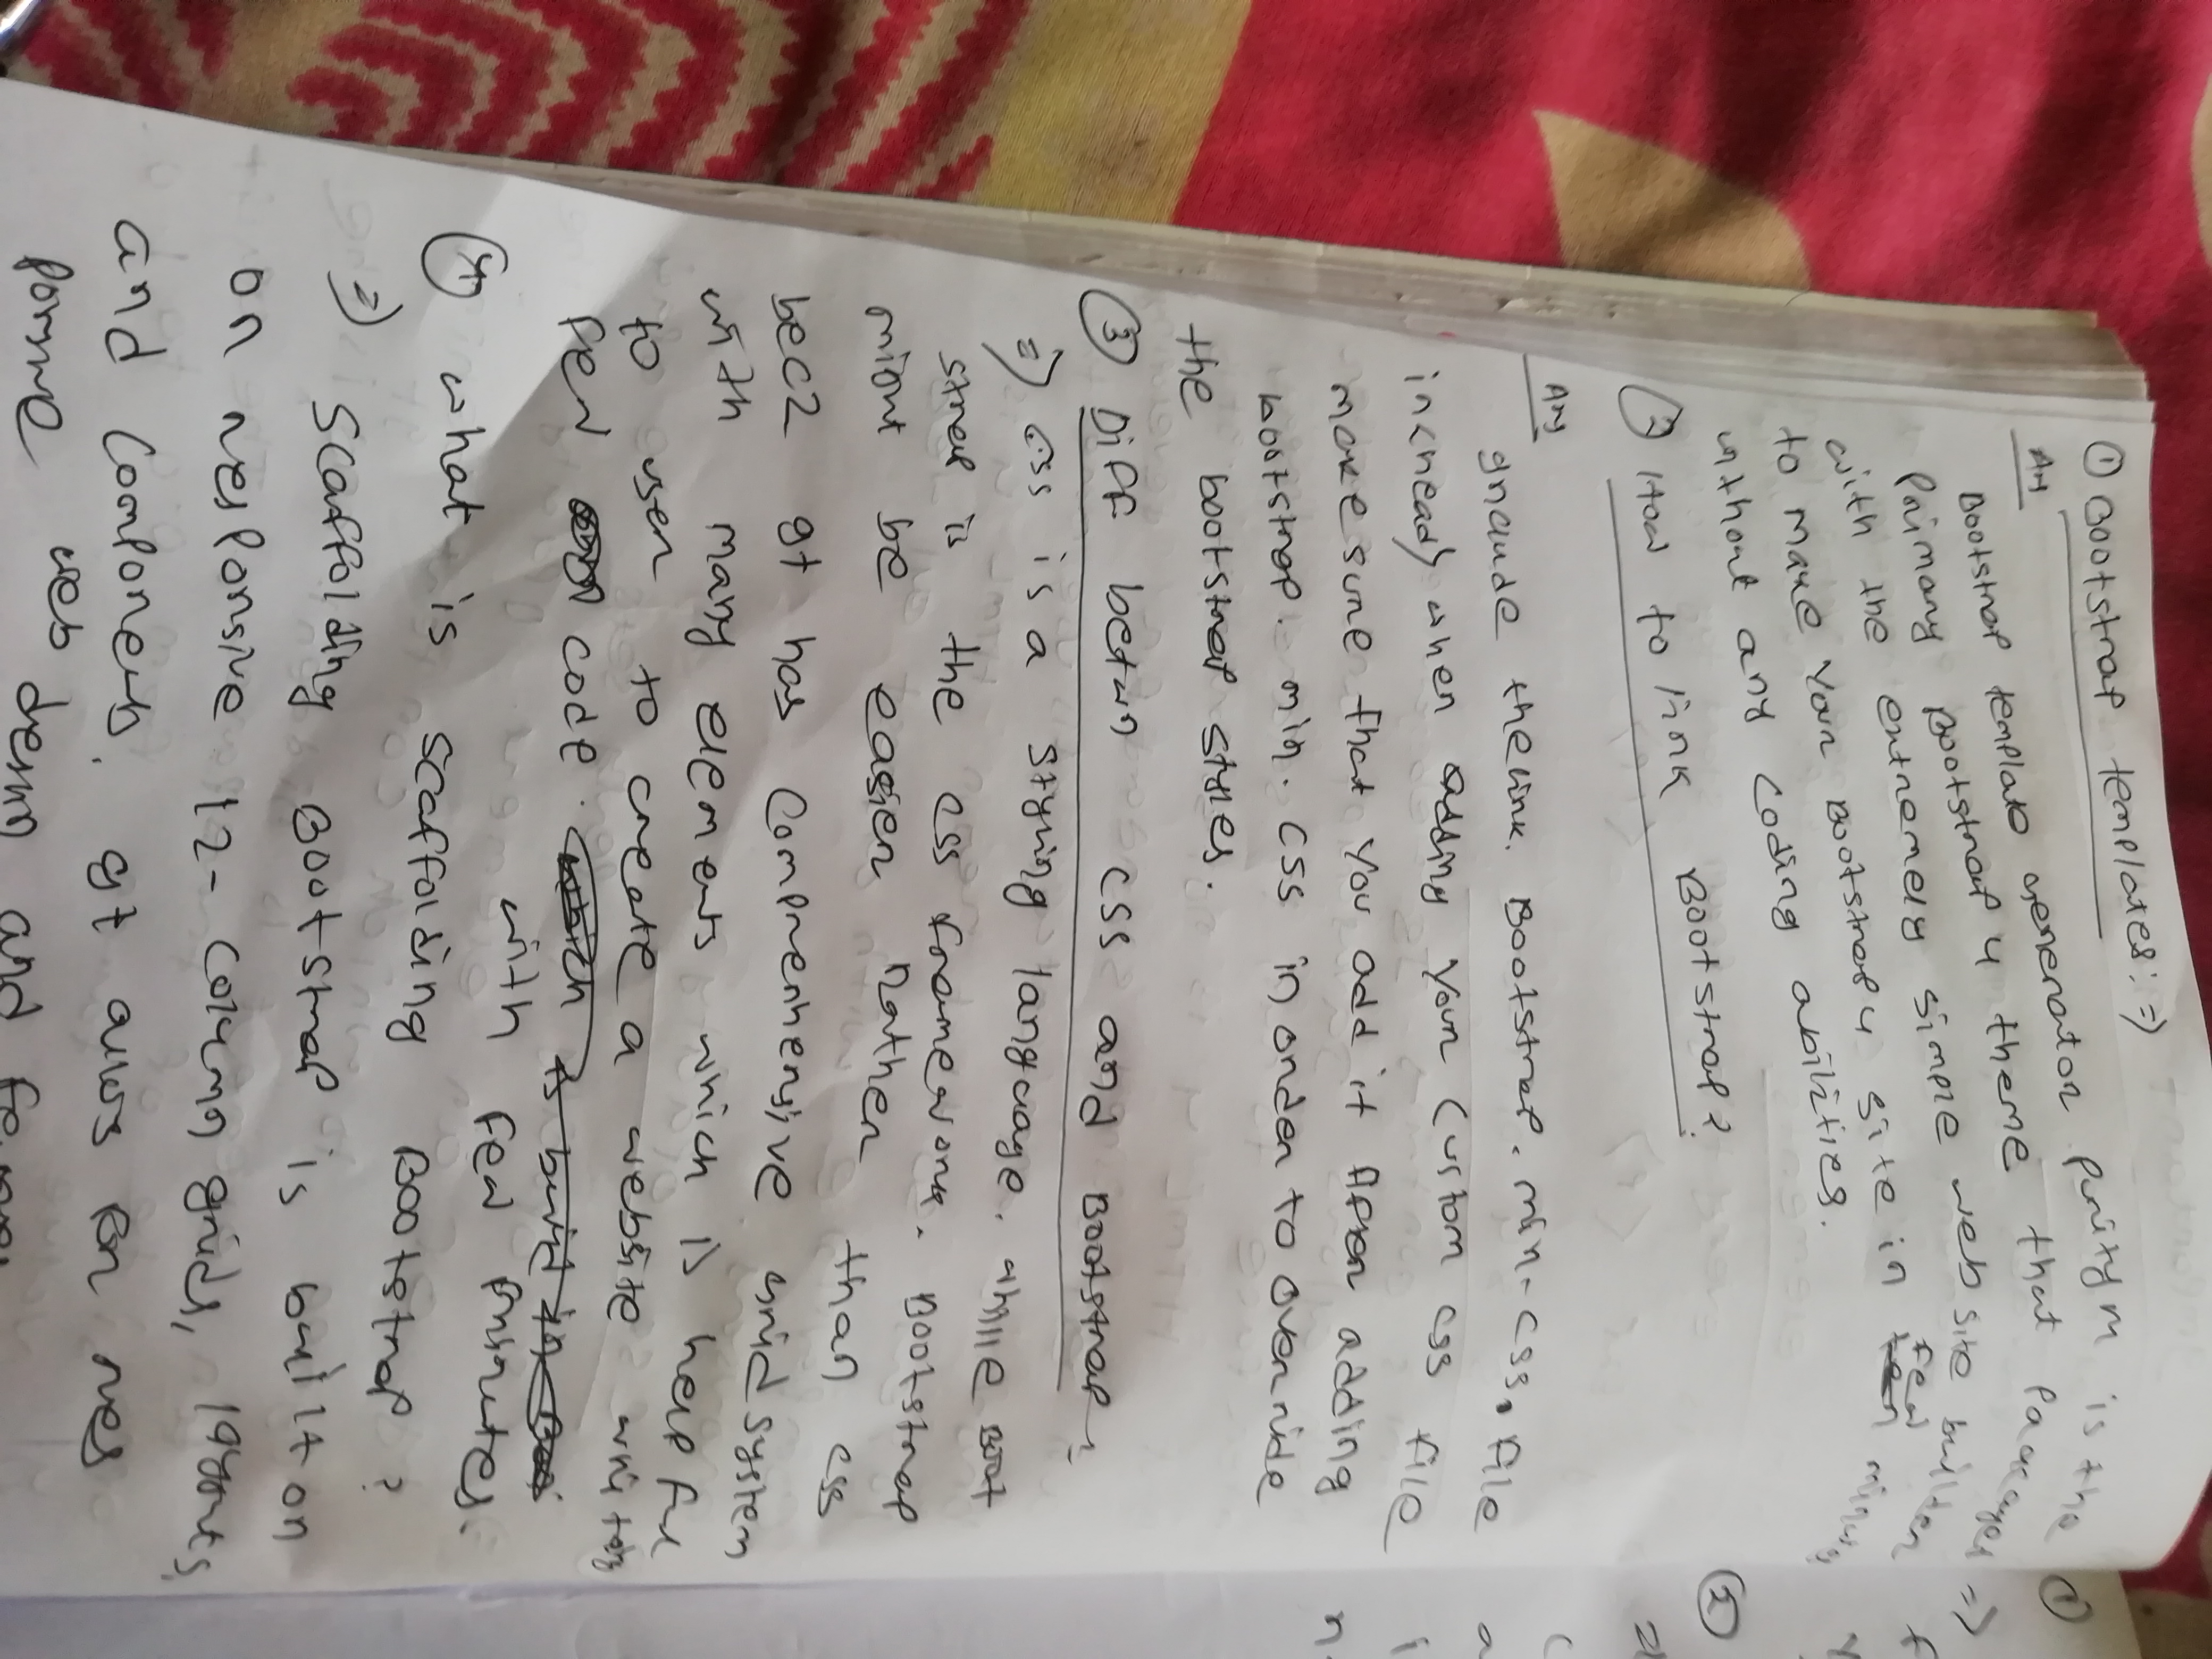 ① Bootstrap templates: =>
Ans
Bootstrap template generator Puritym is the
Primary Bootstrap 4 theme that Packages
with the extremely simple web site builder
to make Your Bootstrap 4 site in few minutes
without any coding abilities.
② How to link Bootstrap?
Ans
Include the link. Bootstrap. min-css. file
in <head> when adding your custom css file
make sure that you add it After adding
bootstrap. min. css in order to override
the bootstrap styles.
③ Diff betwn css and Bootstrap:
=> css is a styling language. while Boot
strap is the css framework. Bootstrap
might be easier rather than css
becz It has Comprenhensive grid system
with many elements which is helpful
to user to create a website
few code. which is build in
with few minutes.
④ what is scaffolding Bootstrap?
=> Scaffolding Bootstrap is built on
on responsive 12-column grids, layouts,
and components. It allows for res
ponsive web design and
①
=>
f
Y
②
a
i
n